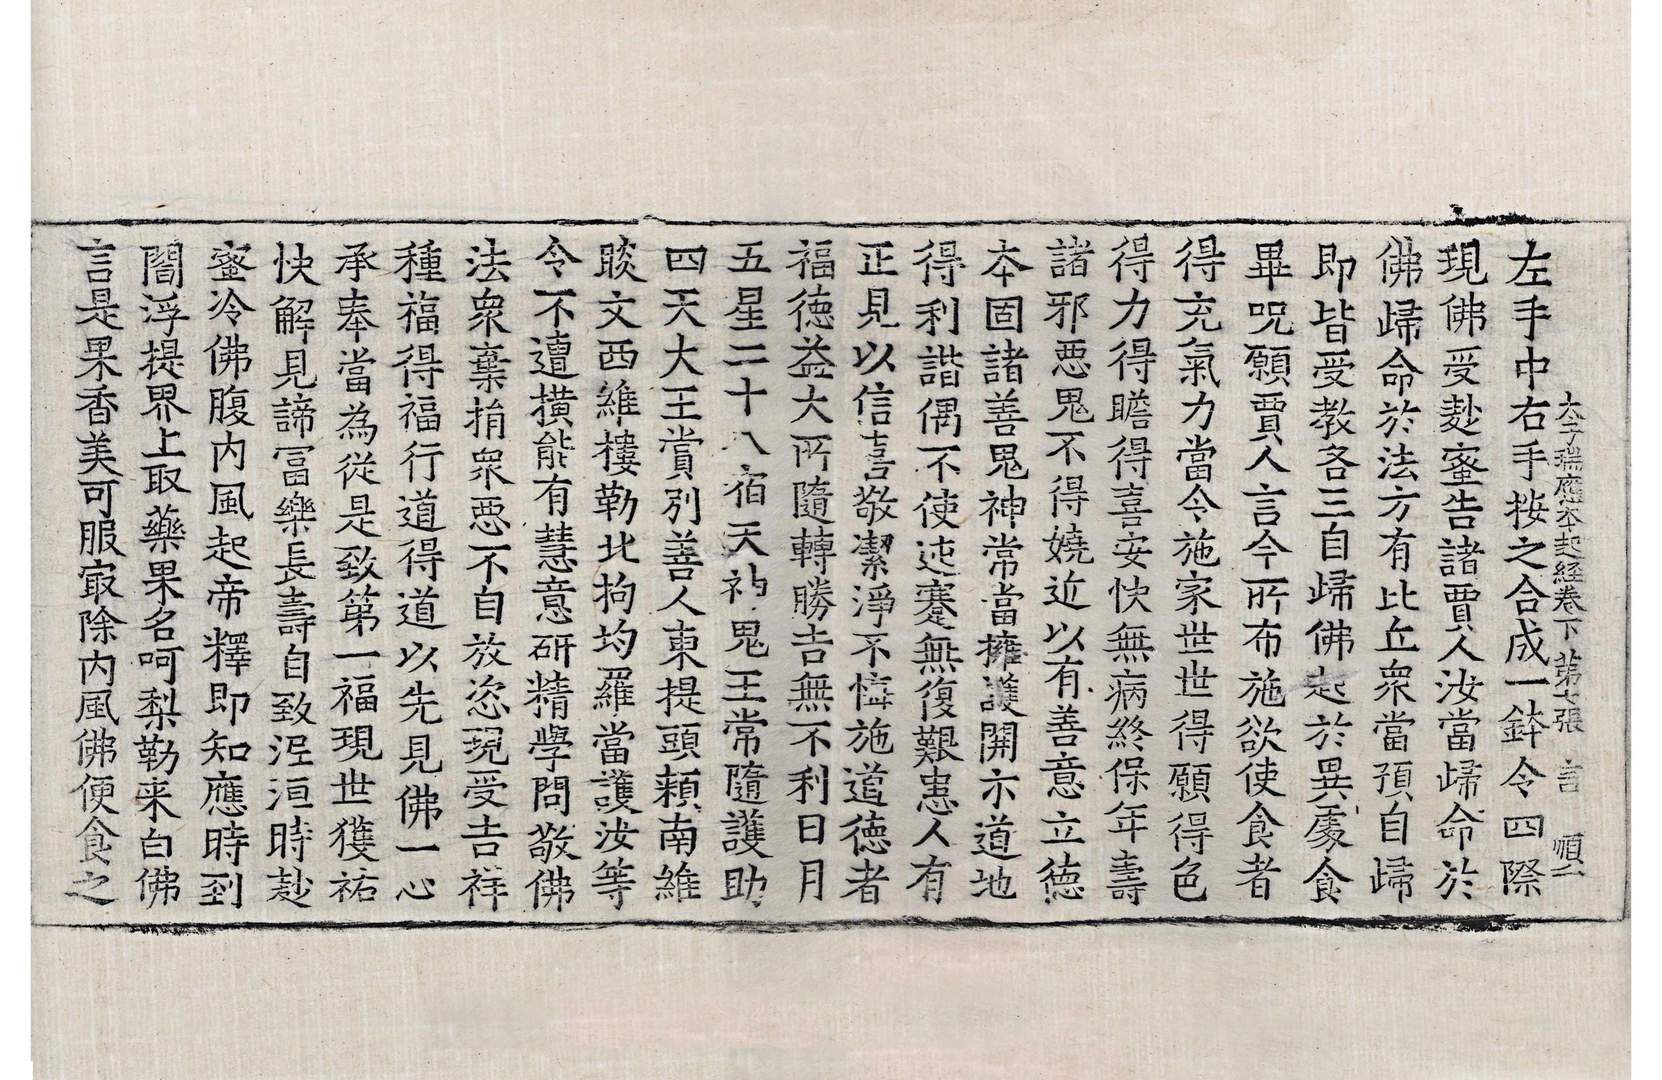 太子瑞應本起経卷下 第七張 言 順二
左手中右手按之合成一鉢令四際
現佛受麨蜜告諸賈人汝當歸命於
佛歸命於法方有比丘衆當預自歸
即皆受教各三自歸佛起於異處食
畢呪願賈人言今所布施欲使食者
得充氣力當令施家世世得願得色
得力得瞻得喜安快無病終保年壽
諸邪惡鬼不得嬈近以有善意立德
本固諸善鬼神常當擁護開示道地
得利諧偶不使迍蹇無復艱患人有
正見以信喜敬潔淨不悔施道德者
福德益大所隨轉勝吉無不利日月
五星二十八宿天神鬼王常隨護助
四天大王賞別善人東提頭賴南維
睒文西維樓勒北拘均羅當護汝等
令不遭橫能有慧意研精學問敬佛
法衆棄捐衆惡不自放恣現受吉祥
種福得福行道得道以先見佛一心
承奉當為從是致第一福現世獲祐
快解見諦冨樂長壽自致泥洹時麨
蜜冷佛腹内風起帝釋即知應時到
閻浮提界上取藥果名呵梨勒来白佛
言是果香美可服㝡除内風佛便食之